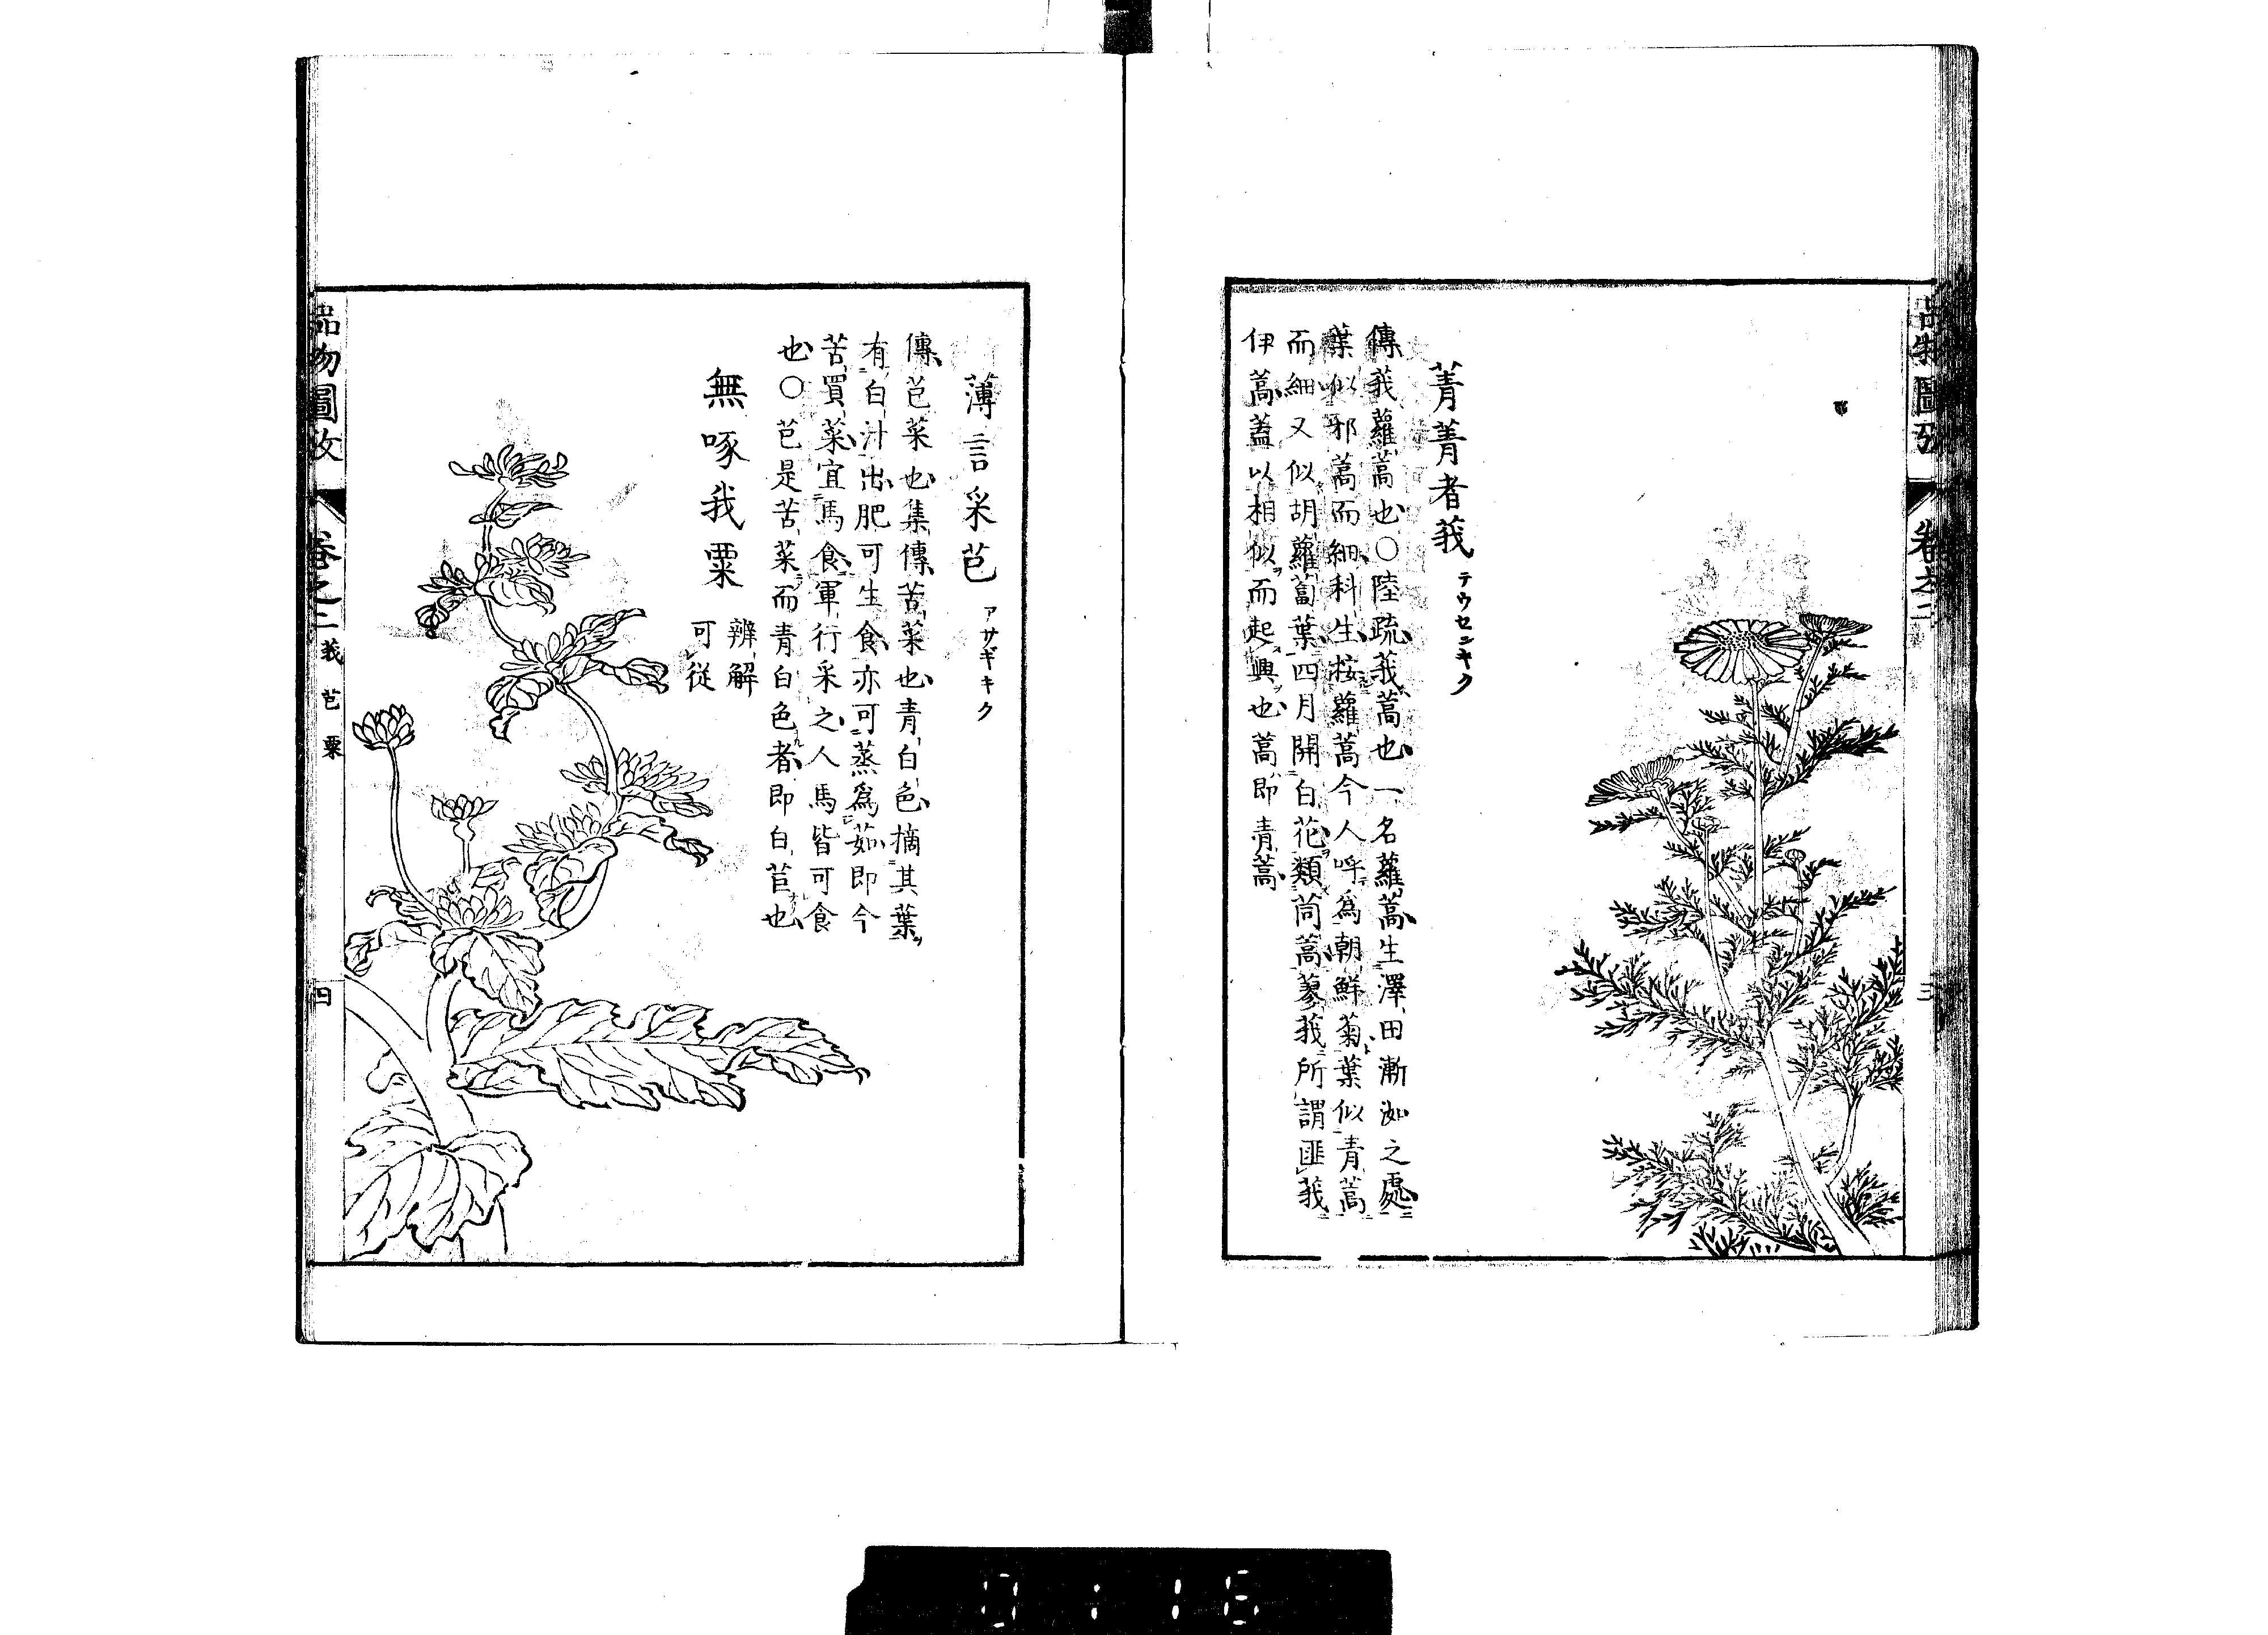 品物圖攷 卷之二
三
菁菁者莪 テウセンキク
傳莪蘿蒿也○陸疏莪蒿也一名蘿蒿生澤田漸洳之處
葉似邪蒿而細科生按蘿蒿今人呼爲朝鮮菊葉似青蒿
而細又似胡蘿蔔葉四月開白花類茼蒿蓼莪所謂匪莪
伊蒿蓋以相似而起興也蒿即青蒿
薄言采芑 アサギキク
傳芑菜也集傳苦菜也青白色摘其葉
有白汁出肥可生食亦可蒸爲茹即今
苦買菜宜馬食軍行采之人馬皆可食
也○芑是苦菜而青白色者即白苣也
無啄我粟 辨解
可從
品物圖攷 卷之二 莪 芑 粟
四